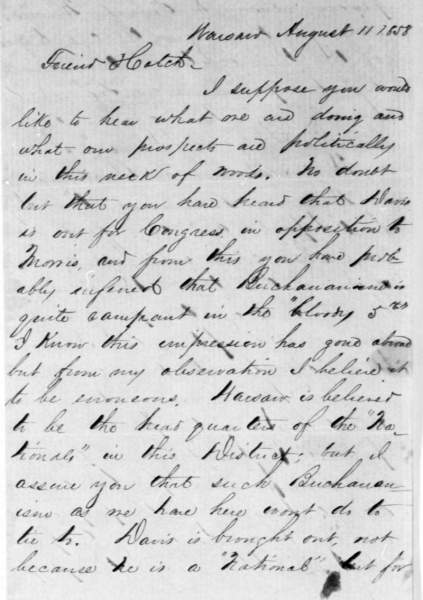 Warsaw August 11 1858
Friend Hatch
I suppose you would
like to hear what we are doing and
what our prospects are politically
in this neck of woods. No doubt
but that you have heard that Davis
is out for Congress in opposition to
Morris, and from this you have prob-
ably infered that Buchananism is
quite rampant in the "bloody 5th"
I know this impression has gone abroad
but from my observation I believe it
to be erroneous. Warsaw is believed
to be the head quarters of the "Na-
tionals" in this District; but, I
assure you that such Buchanan-
ism as we have here wont do to
tie to. Davis is brought out, not
because he is a "National" but for